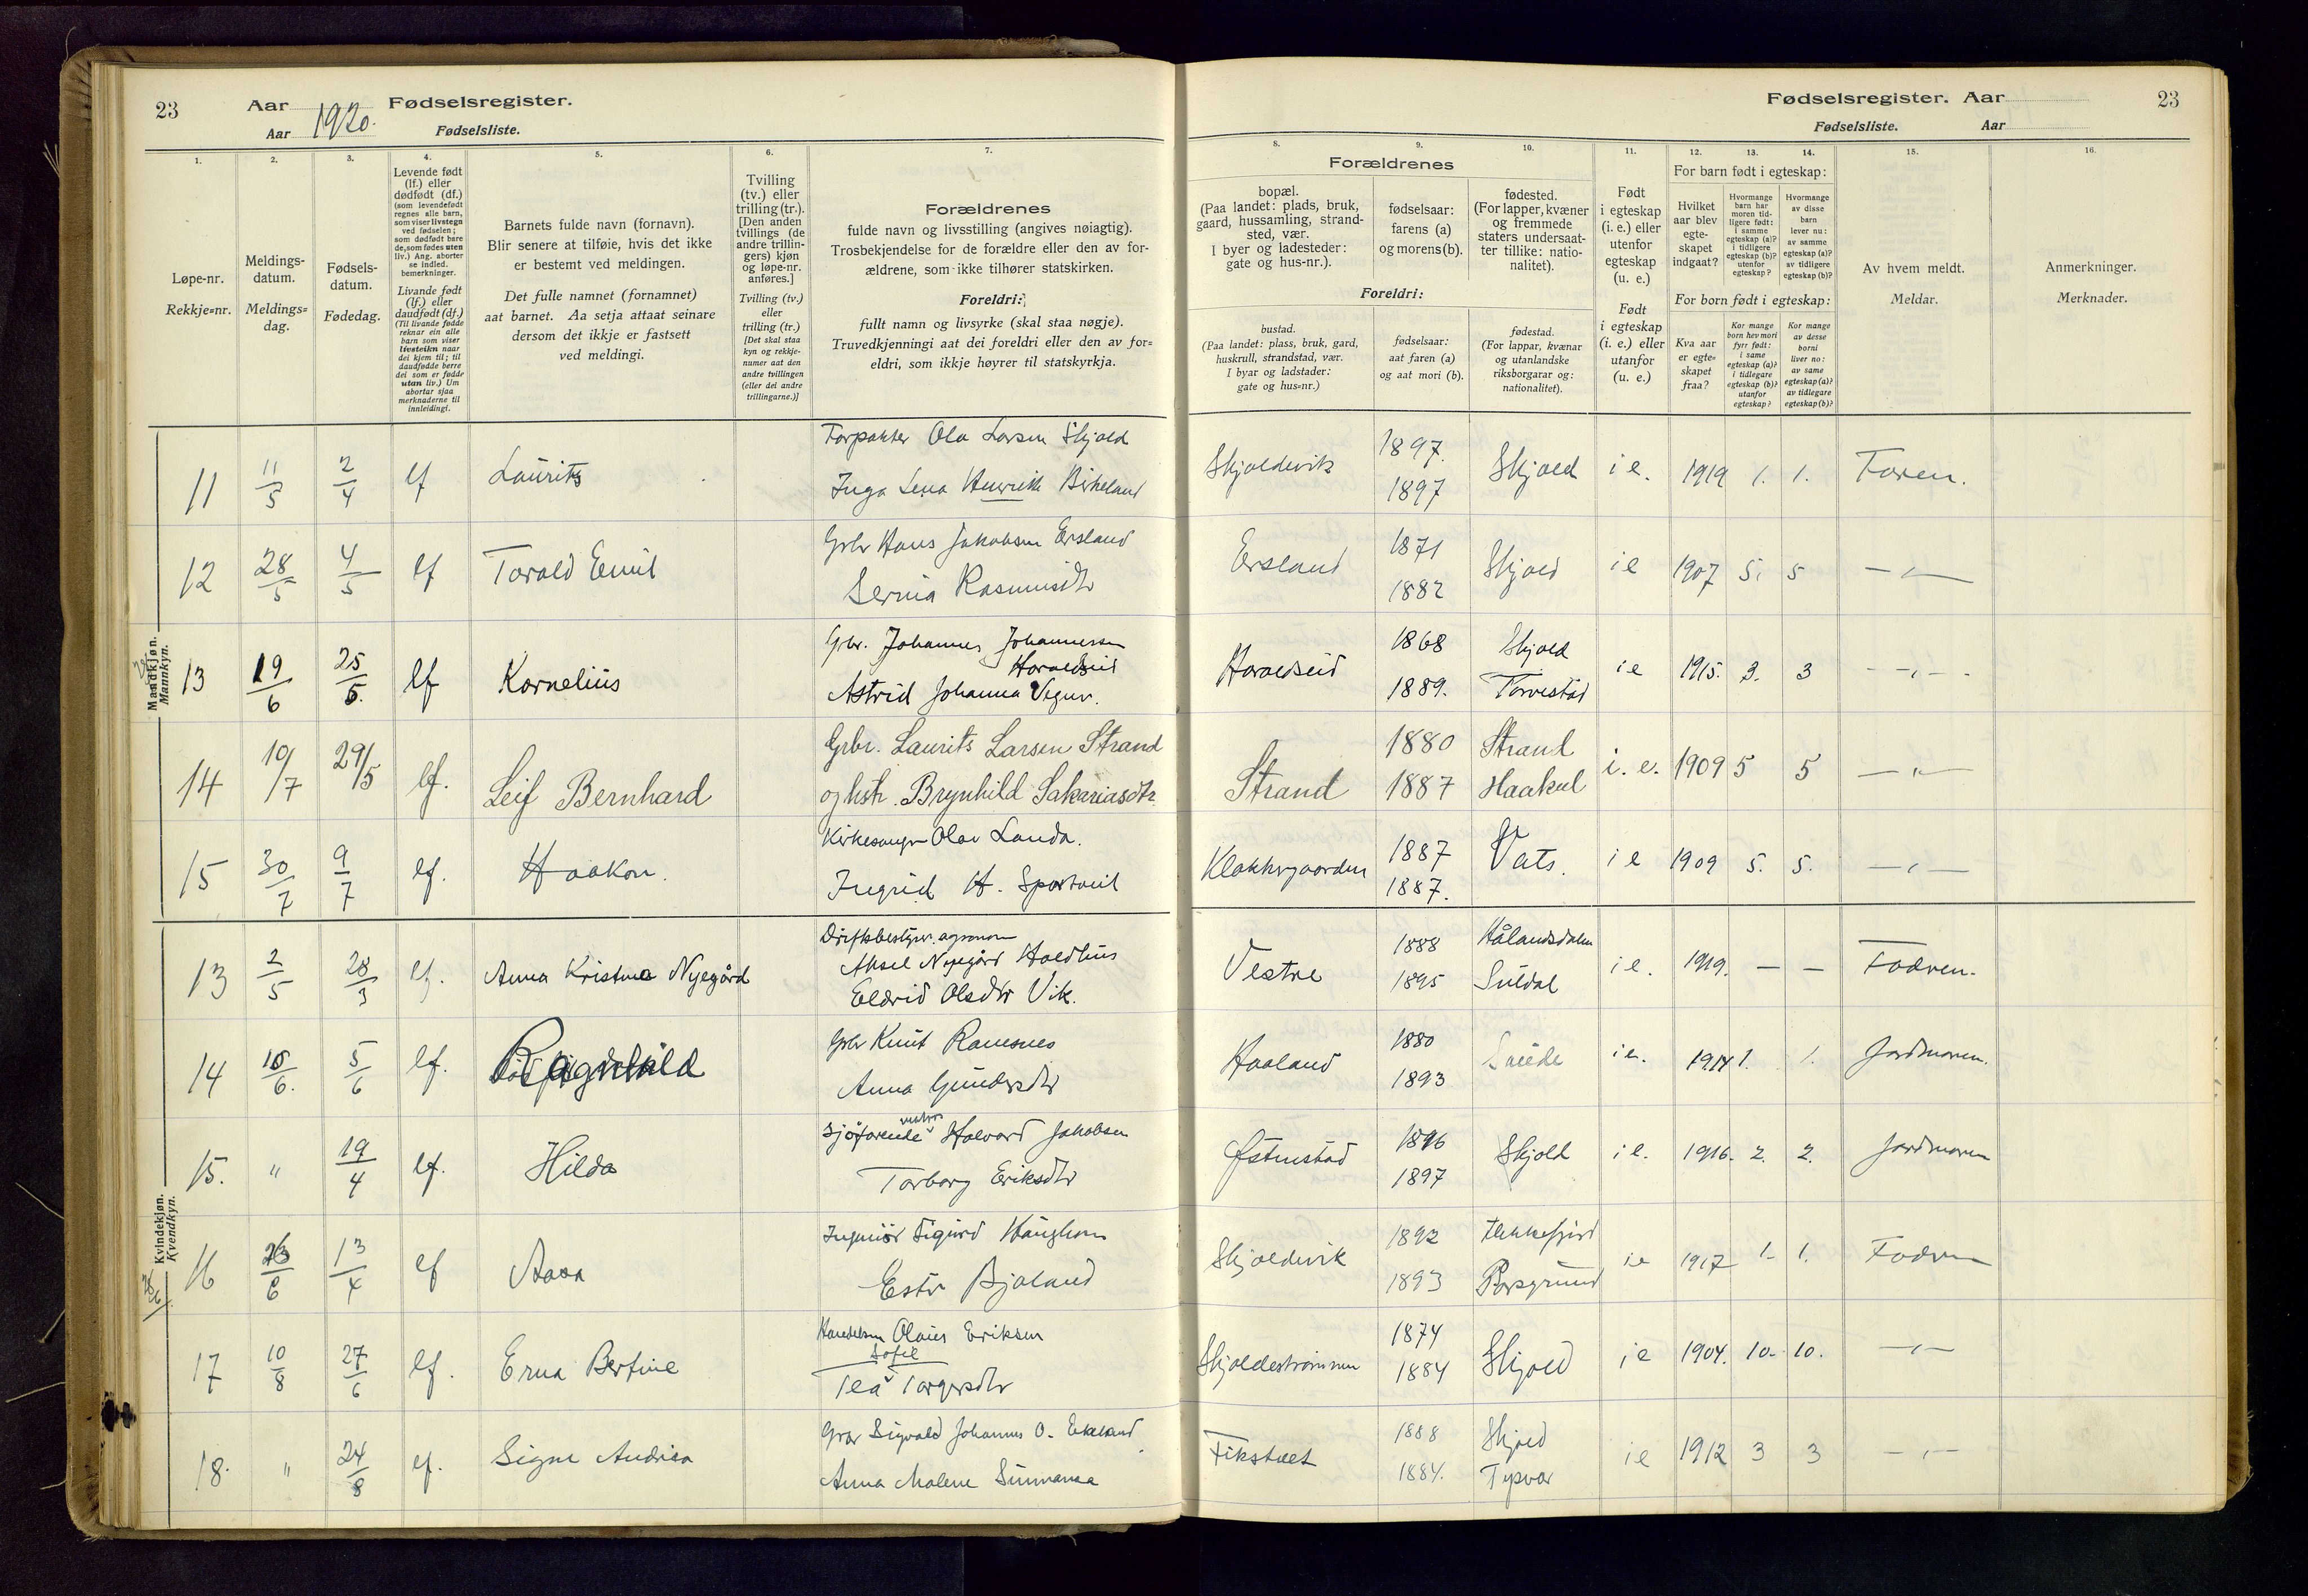 23
Aar
Fødselsregister.
Aar 1920.
Fødselsliste.
1.
2.
3.
4.
5.
6.
7.
Løpe-nr.
Rekkje=nr.
Meldings-
datum.
Meldings=
dag.
Fødsels-
datum.
Fødedag.
Levende født
(lf.) eller
dødfødt (df.)
(som levendefødt
regnes alle barn,
som viser livstegn
ved fødselen;
som dødfødt bare
de, som fødes uten
liv.) Ang. aborter
se indled.
bemerkninger.
Livande født
(lf.) eller
daudfødt (df.)
(Til livande fødde
reknar ein alle
barn som viser
livsteikn naar
dei kjem til; til
daudfødde berre
dei som er fødde
utan liv.) Um
abortar sjaa
merknaderne til
innleidingi.
Barnets fulde navn (fornavn).
Blir senere at tilføie, hvis det ikke
er bestemt ved meldingen.
Det fulle namnet (fornamnet)
aat barnet. Aa setja attaat seinare
dersom det ikkje er fastsett
ved meldingi.
Tvilling
(tv.) eller
trilling (tr.).
[Den anden
tvillings (de
andre trillin-
gers) kjøn
og løpe-nr.
anføres.]
Tvilling (tv.)
eller
trilling (tr.)
[Det skal staa
kyn og rekkje-
numer aat den
andre tvillingen
(eller dei andre
trillingarne.)]
Forældrenes
fulde navn og livsstilling (angives nøiagtig).
Trosbekjendelse for de forældre eller den av for-
ældrene, som ikke tilhører statskirken.
Foreldri:
fullt namn og livsyrke (skal staa nøgje).
Truvedkjenningi aat dei foreldri eller den av for=
eldri, som ikkje høyrer til statskyrkja.
Mandkjøn.
Mannkyn.
11 11/5 2/4 lf Laurits
Forpakter Ola Larsen Skjold
Inga Lena Henrikk Birkeland
12 28/5 4/5 lf Torald Emil
Gbr Hans Jakobsen Ersland
Serina Rasmusdtr
13 19/6 25/5. lf Kornelius
Gbr. Johannes Johannessen
Haraldseid
Astrid Johanna Vegnr.
14 10/7 29/5 lf. Leif Bernhard
Grbr. Laurits Larsen Strand
og hstr. Brynhild Sakariasdtr.
15 30/7 9/7 lf. Haakon.
Kirkesanger Olav Landa.
Ingrid H.
Kvindekjøn.
Kvendkyn.
13 2/5 28/3 lf. Anna Kristine Nyegård
Driftsbestyrer, agronom
Aksel Nyegård Holdhus
Eldrid Olsdtr Vik.
14 15/6. 5/6 lf. Ragnhild
Gbr Knut Ramsnes
Anna Gundersdtr
15. " 19/4 lf. Hilda
Sjøfarende Halvard Jakobsen
Torborg Eriksdtr
16 26/6 13/4 lf Aasa
Ingeniør Sigurd Haughom
Ester Bjoland
17 10/8 27/6 lf. Erna Bertine
Handelsm Olaus Eriksen
Sofie
Tea Torgersdtr
18. " 24/8 lf. Signe Andrea
Gbr Sigvald Johannes O. Ekeland
Anna Malene Sunnanaa
Fødselsregister. Aar
23
Fødselsliste.
Aar
8.
9.
10.
11.
12.
13.
14.
15.
16.
Forældrenes
bopæl.
(Paa landet: plads, bruk,
gaard, hussamling, strand-
sted, vær.
I byer og ladesteder:
gate og hus-nr.).
fødselsaar:
farens (a)
og morens (b).
fødested.
(For lapper, kvæner
og fremmede
staters undersaat-
ter tillike: natio-
nalitet).
Foreldri:
bustad.
(Paa landet: plass, bruk, gard,
huskrull, strandstad, vær.
I byar og ladstader:
gate og hus=nr.)
fødselsaar:
aat faren (a)
og aat mori (b).
fødestad.
(For lappar, kvænar
og utanlandske
riksborgarar og:
nationalitet).
Født
i egteskap
(i. e.) eller
utenfor
egteskap
(u. e.)
Født
i egteskap
(i. e.) eller
utanfor
(u. e.)
For barn født i egteskap:
Hvilket
aar blev
egte-
skapet
indgaat?
Hvormange
barn har
moren tid-
ligere født:
i samme
egteskap (a)?
i tidligere
egteskap (b)?
utenfor
egteskap?
Hvormange
av disse
barn
lever nu:
av samme
egteskap (a)?
av tidligere
egteskap (b)?
For born født i egteskap:
Kva aar
er egte=
skapet
fraa?
Kor mange
born hev mori
fyrr født:
i same
egteskap (a)?
i tidlegare
egteskap (b)?
utanfor
egteskap?
Kor mange
av desse
borni
liver no:
av same
egteskap (a)?
av tidlegare
egteskap (b)?
Av hvem meldt.
Meldar.
Anmerkninger.
Merknader.
Skjoldevik 1897. 1897 Skjold i e. 1919 1. 1. Faren.
Ersland 1871 1882 Skjold i e 1907 5. 5 — " —
Haraldseid 1868 1889. Skjold Torvestad i e 1915. 3. 3 — " —
Strand 1880 1887 Strand i. e. 1909 5 5 — " —
Klokkergaarden 1887 1887. Vats. i e 1909 5. 5. — " —
Vestre 1888 1895 Hålandsdalen Suldal i e. 1919. — — Faderen.
Haaland 1880 1893 Saude i e. 1914 1. 1. Jordmoren.
Østenstad 1896 1897 Skjold i e. 1916. 2. 2. Jordmoren
Skjoldevik 1892 1893 Flekkefjord Porsgrund i e 1917 1. 1. Faderen
Skjoldestrømmen 1874 1884 Skjold i e 1904. 10. 10. — " —
Fikstveit 1888 1884. Skjold Tysvær i e 1912 3 3 — " —